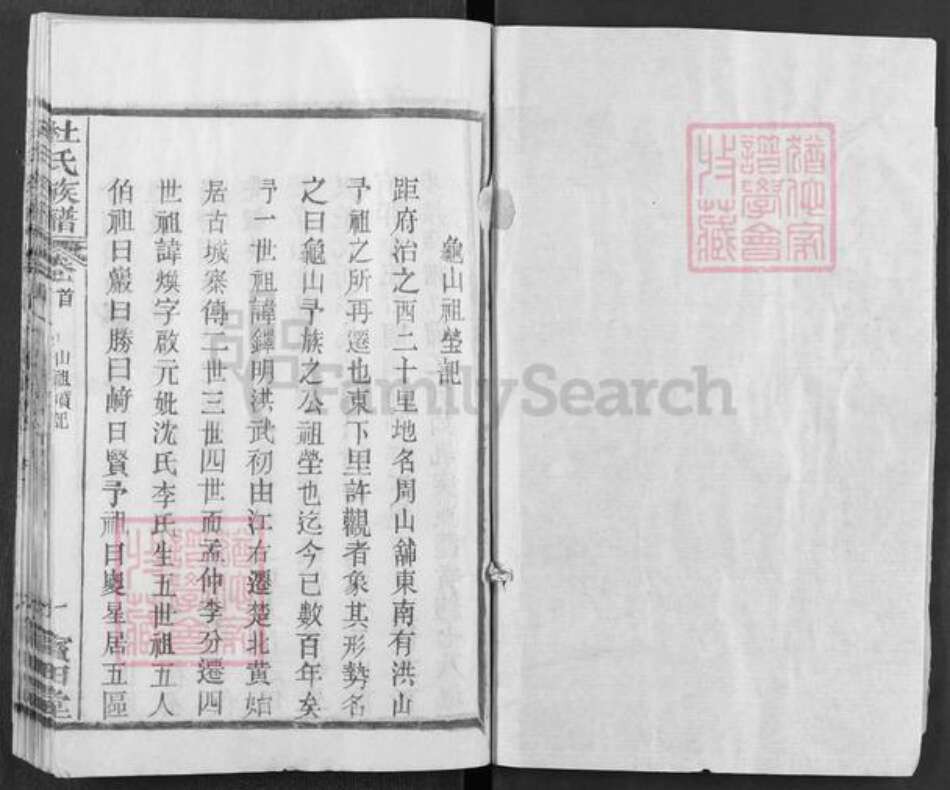 龜山祖塋記
距府治之西二十里地名周山舖東南有洪山
予祖之所再遷也東下里許觀者象其形勢名
之曰龜山予族之公祖塋也迄今已數百年矣
予一世祖諱鐸明洪武初由江右遷楚北黃始
居古城寨傳二世三世四世而孟仲季分遷四
世祖諱煥字啟元妣沈氏李氏生五世祖五人
伯祖曰嚴曰勝曰崎曰賢予祖曰夔星居五區
杜氏族譜
卷首
山祖塋記
一
寶田堂
譜學會
收藏
FamilySearch